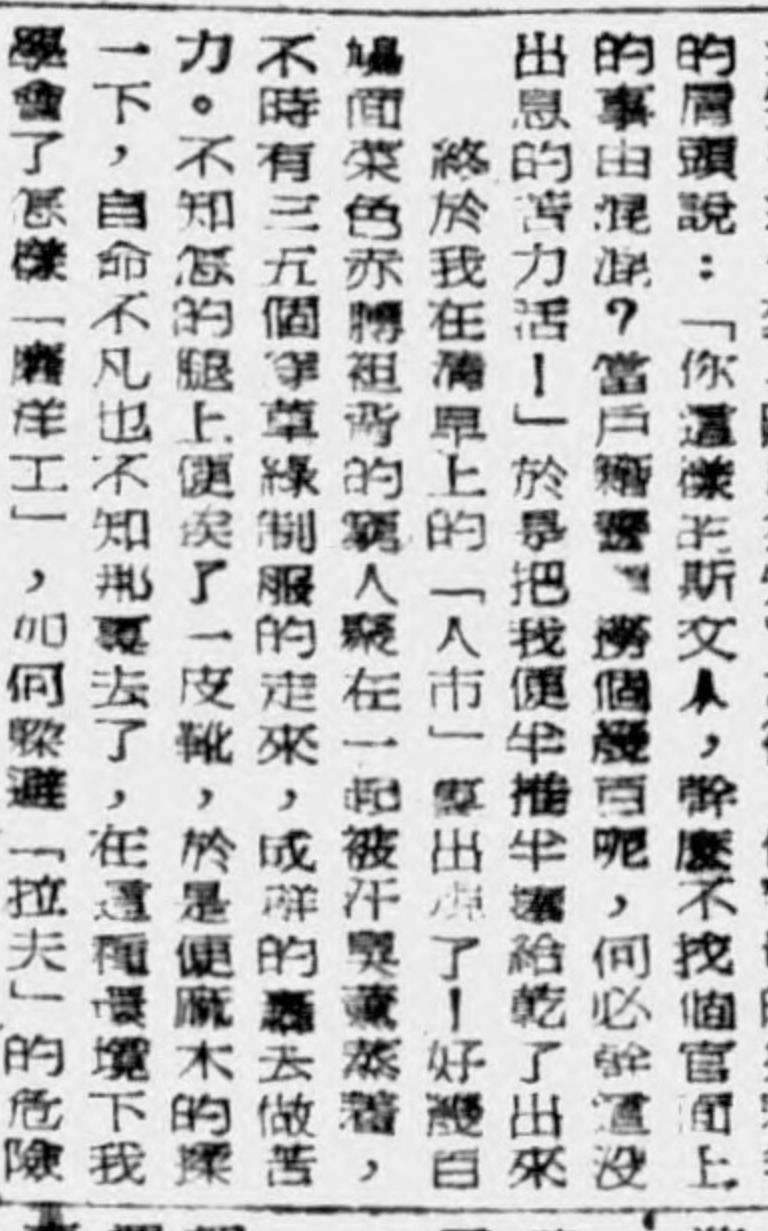 的肩頭說：「你這樣的斯文人，幹麼不找個官面上
的事由混混？當戶籍警，撈個幾百呢，何必幹這沒
出息的苦力活！」於是把我便半推半壤給乾了出來
終於我在清早上的「人市」要出現了！好幾百
鳩面菜色赤膊袒背的窮人聚在一起被汗臭薰蒸着，
不時有三五個穿草綠制服的走來，成群的轟去做苦
力。不知怎的腿上便挨了一皮靴，於是便麻木的揉
一下，自命不凡也不知那裏去了，在這種環境下我
學會了怎樣「磨洋工」，如何躲避「拉夫」的危險